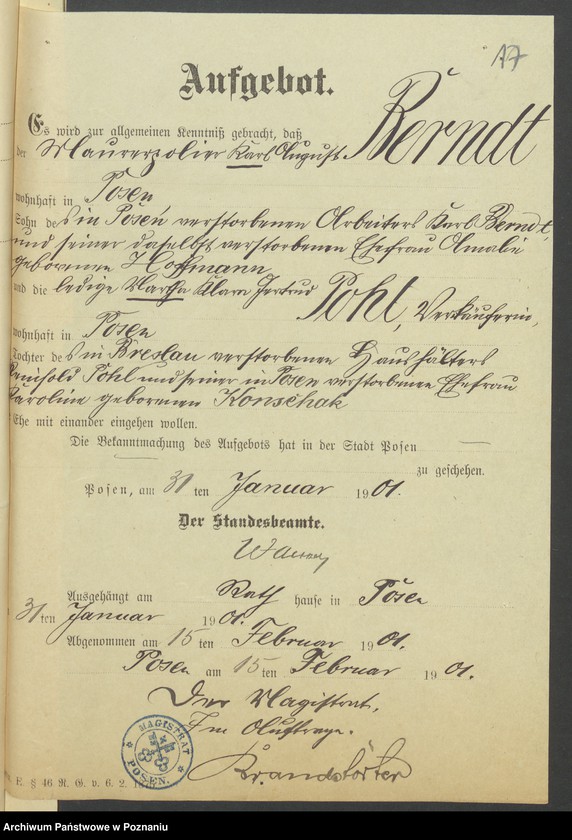 17
Aufgebot.
Es wird zur allgemeinen Kenntniß gebracht, daß
der Maurerpolier Karl August Berndt
wohnhaft in Posen
Sohn des in Posen verstorbenen Arbeiters Karl Berndt,
und seiner daselbst verstorbenen Ehefrau Amalie
geborenen Hoffmann
und die ledige Martha Klara Gertrud Pohl, Verkäuferin,
wohnhaft in Posen
Tochter des in Breslau verstorbenen Haushälters
Reinhold Pohl und seiner in Posen verstorbenen Ehefrau
Karoline geborenen Konschak
Ehe mit einander eingehen wollen.
Die Bekanntmachung des Aufgebots hat in der Stadt Posen
zu geschehen.
Posen, am 31 ten Januar 1901.
Der Standesbeamte.
Ausgehängt am Rathhause in Posen
31 ten Januar 1901.
Abgenommen am 15 ten Februar 1901.
Posen am 15 ten Februar 1901.
Der Magistrat.
Im Auftrage.
MAGISTRAT
POSEN.
E. § 46 R. G. v. 6. 2.
Archiwum Państwowe w Poznaniu